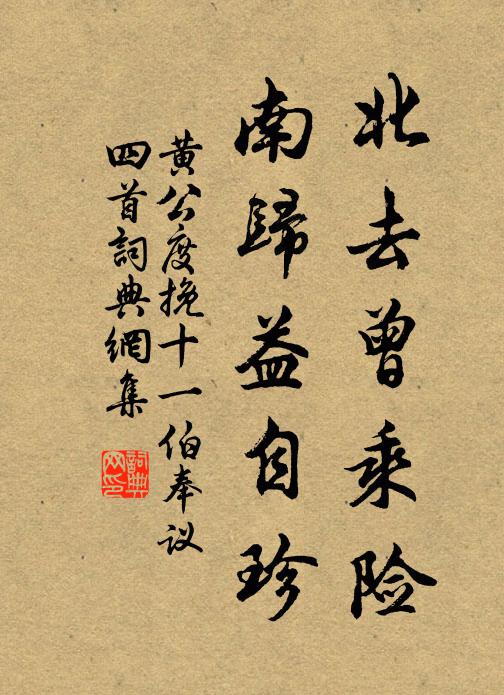 北去曾乘险
南歸益自珍
黄公度挽十一伯奉议
四首詞典網集
詞典網印